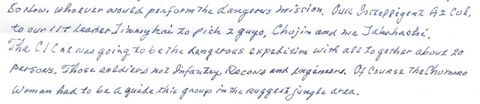 So Now, whoever would perform the dangerous mission. Our Intelligent G2 Col,
to our IIT Leader Jimmy Kai to pick 2 guys, Chojin and me Takahashi.
The CIC Lt was going to be the dangerous expedition with all together above 20
persons, Those soldiers not Infantry, Recons and engineers. Of Course The Chomoro
Woman had to be a guide this group in the rugged jungle area.